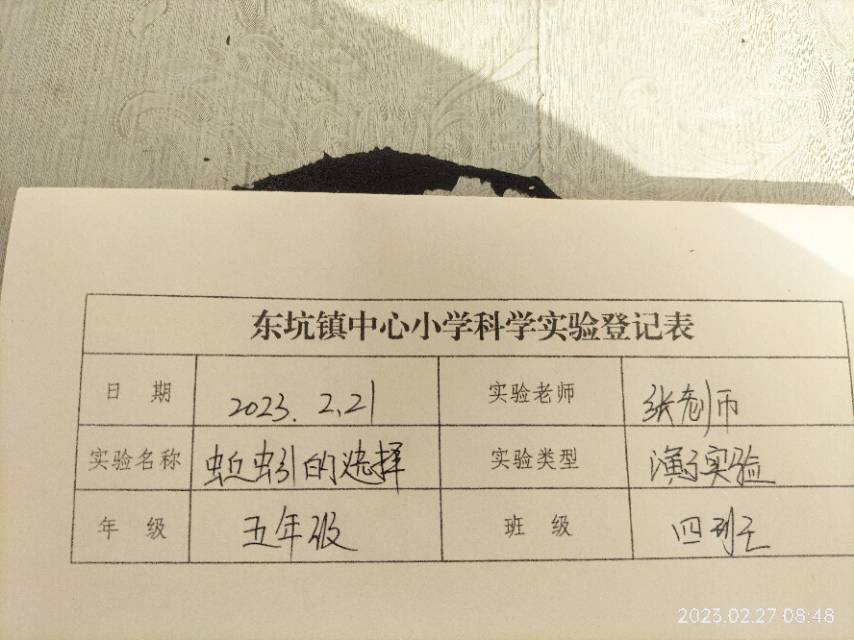 东坑镇中心小学科学实验登记表
日 期 2023. 2.21 实验老师 张老师
实验名称 蚯蚓的选择 实验类型 演示实验
年 级 五年级 班 级 四班
2023.02.27 08:48